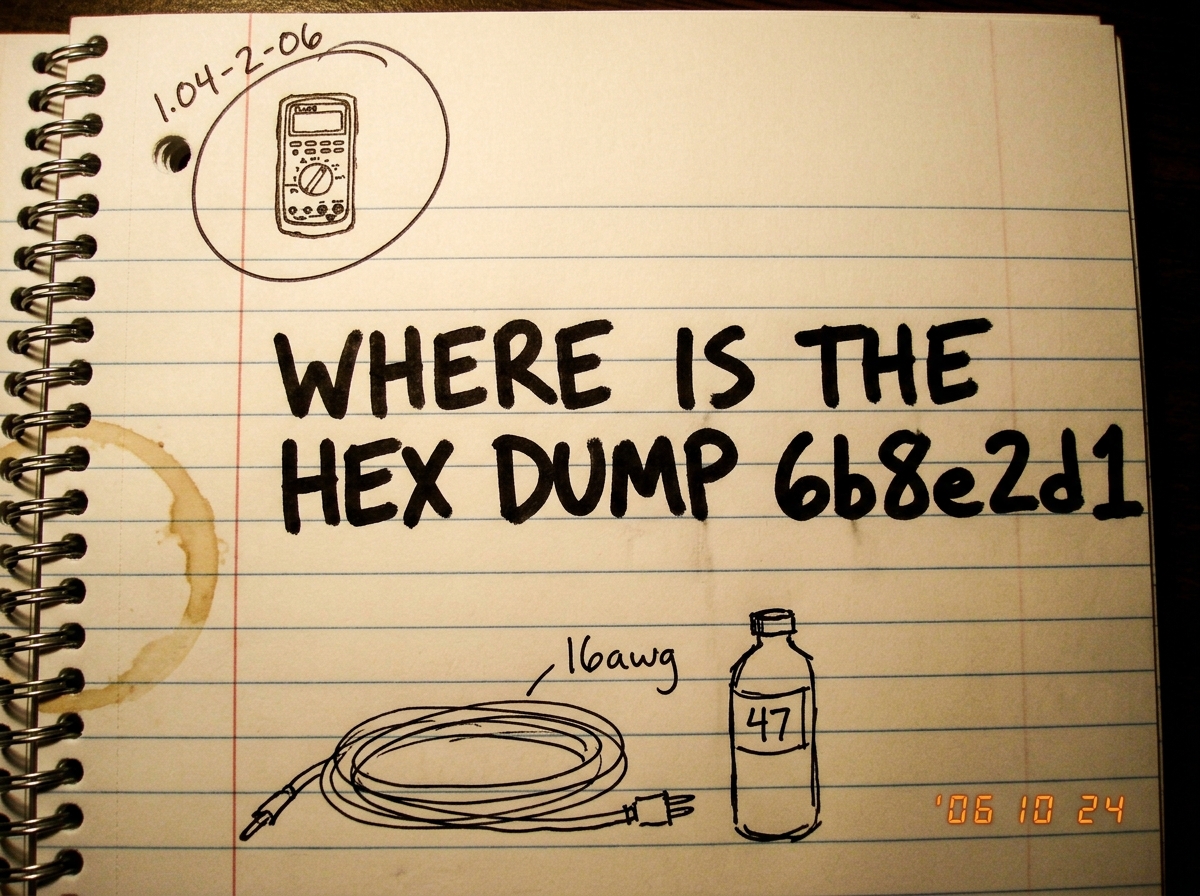 1.04-2-06
WHERE IS THE
HEX DUMP 6b8e2d1
16awg
47
'06 10 24